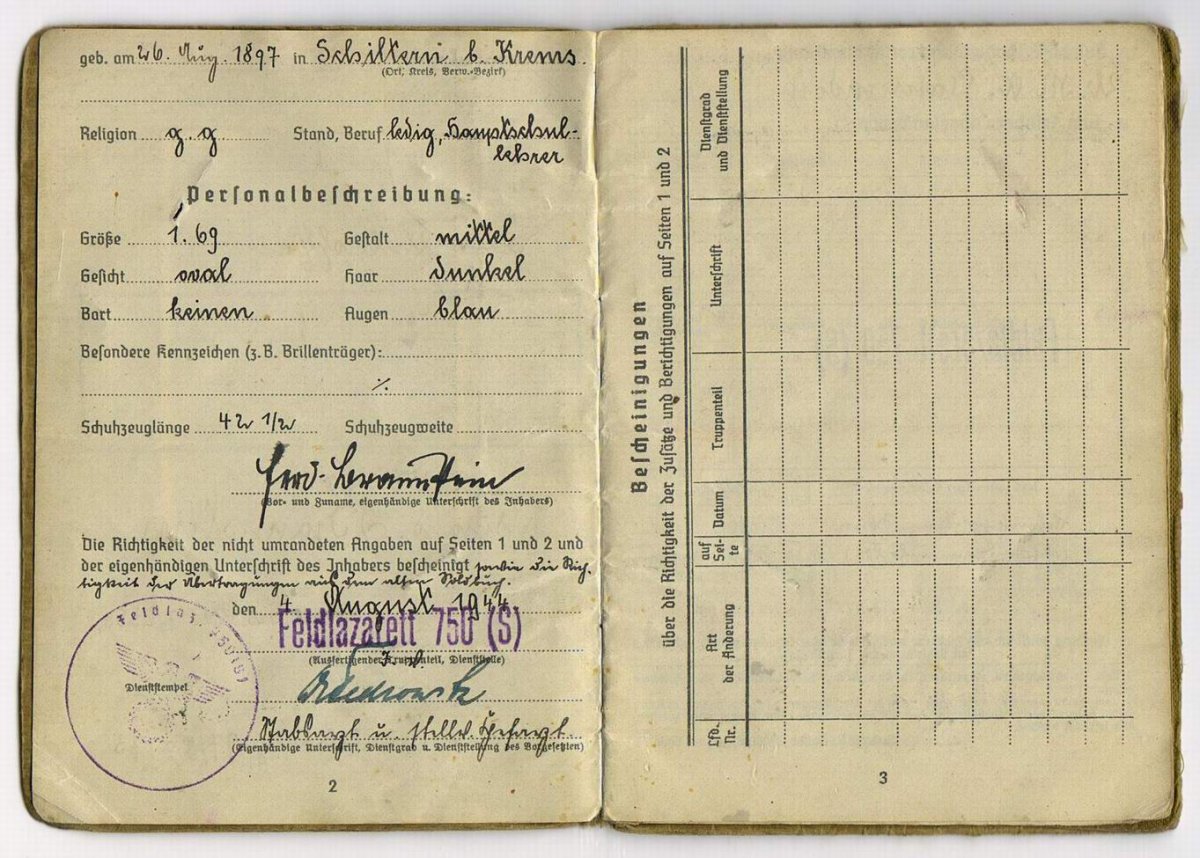 geb. am 26. Aug. 1897 in Schiltern b. Krems.
(Ort, Kreis, Verw.-Bezirk)
Religion g. g Stand, Beruf ledig, Hauptschul-
lehrer
Personalbeschreibung:
Größe 1.69 Gestalt mittel
Gesicht oval Haar dunkel
Bart keinen Augen blau
Besondere Kennzeichen (z.B. Brillenträger):
%
Schuhzeuglänge 42 1/2 Schuhzeugweite
Ferd. Braunstein
(Vor- und Zuname, eigenhändige Unterschrift des Inhabers)
Die Richtigkeit der nicht umrandeten Angaben auf Seiten 1 und 2 und
der eigenhändigen Unterschrift des Inhabers bescheinigt sowie die Rich-
tigkeit der Übertragungen aus dem alten Soldbuch.
den 4. August 1944
Feldlazarett 750 (S)
(Ausfertigender Truppenteil, Dienststelle)
Feldlaz. 750 (S)
Dienststempel
Stabsarzt u. stellv. Chefarzt.
(Eigenhändige Unterschrift, Dienstgrad u. Dienststellung des Vorgesetzten)
2
Bescheinigungen
über die Richtigkeit der Zusätze und Berichtigungen auf Seiten 1 und 2
Lfd. Nr.
Art der Änderung
auf Sei-te
Datum
Truppenteil
Unterschrift
Dienstgrad und Dienststellung
3